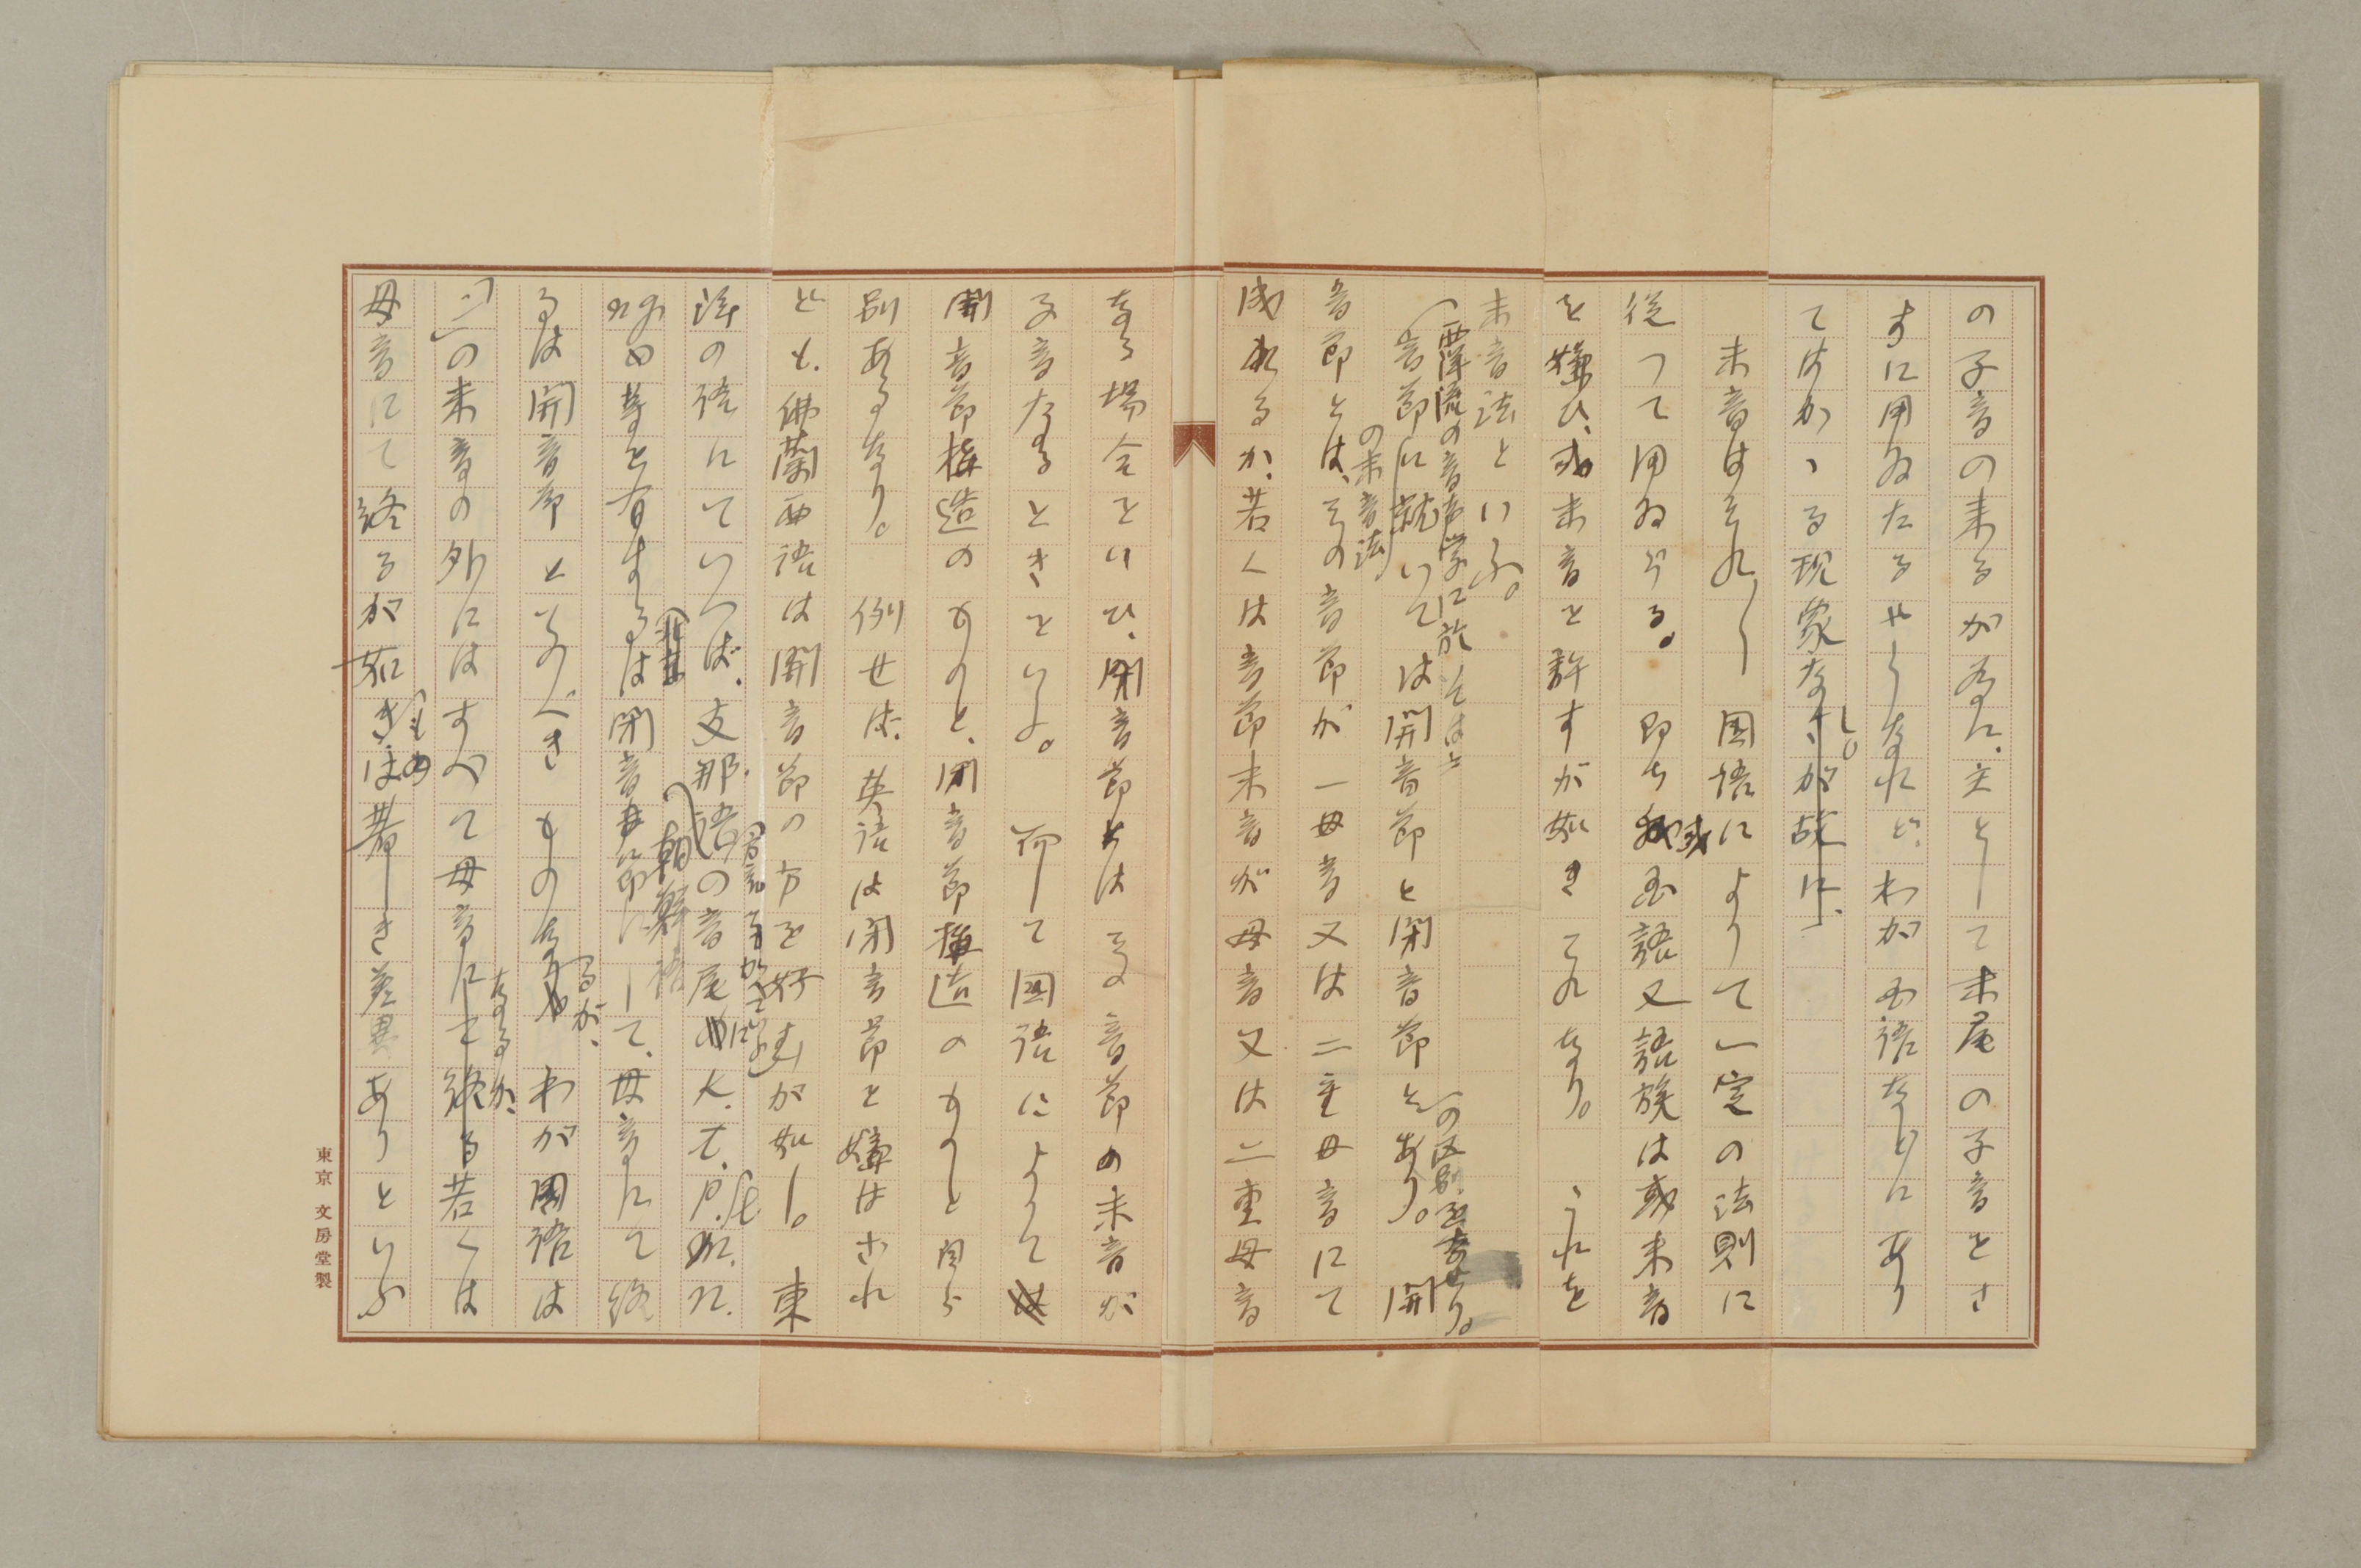 の子音の来るが為に、主として末尾の子音とさ
すに用ゐたるやうなれど、わが国語などにあり
てはかゝる現象なし。さが故に、
末音はそれ〳〵国語によりて一定の法則に
従つて用ゐらる。即ち或国語又語族は或末音
を嫌ひ、或末音を許すが如きこれなり。これを
末音法といふ。
西洋流の音声学に於ては
音節の末音法に就いては開音節と閉音節とあり。開
の区別
音節とは、その音節が一母音又は二重母音にて
成れるか、若くは音節末音が母音又は二重母音
なる場合をいひ、閉音節とは音節の末音が
子音なるときをいふ。而して国語によりて
開音節構造のものと、閉音節構造のものと自ら
別あるなり。例せば、英語は閉音節を嫌はされ
ども、佛蘭西語は開音節の方を好むが如し。東
洋の語にていへば、支那語の音尾に k. t. p. n.
方言
朝鮮語
ng 等を有するは閉音節にして、母音にて終
るは開音節といふべきものなるが、わが国語は
「ン」の末音の外にはすべて母音にて終る若くは
なるが、
母音にて終るが如きほ著しき差異ありといふ
東京 文房堂製